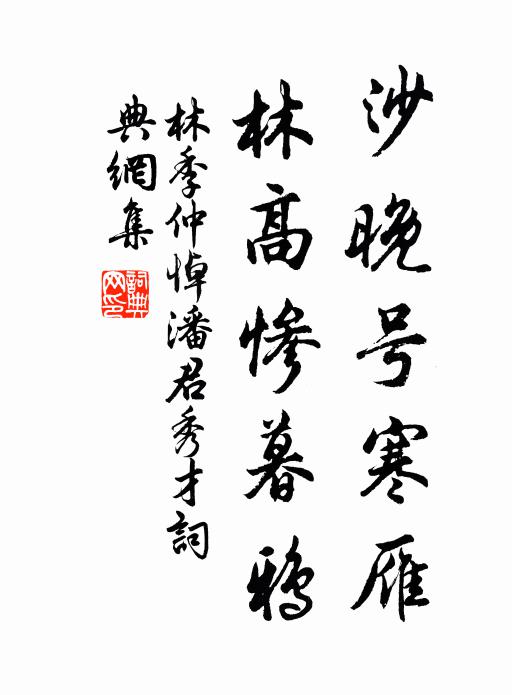 沙晚号寒雁
林高慘暮鴉
林季仲悼潘君秀才詞
典網集
詞典
网印